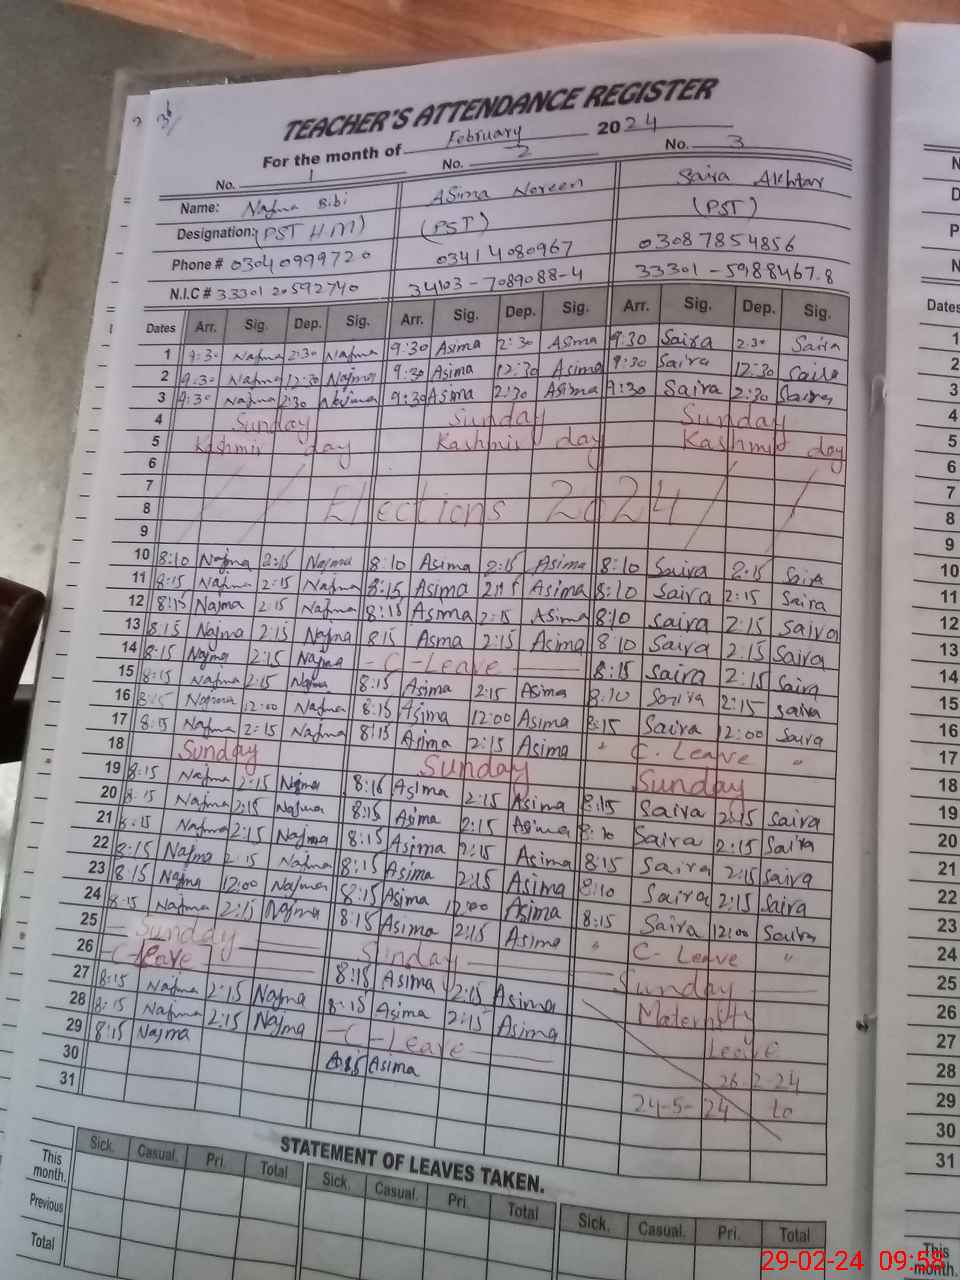 36
TEACHER'S ATTENDANCE REGISTER
For the month of February 2024
No. 1 No. 2 No. 3
Name: Najma Bibi Asima Noreen Saira Akhtar
Designation: (PST H.M) (PST) (PST)
Phone # 03040999720 03414080967 03087854856
N.I.C # 33301 20592740 34103-7089088-4 33301-5988467.8
Dates Arr. Sig. Dep. Sig. Arr. Sig. Dep. Sig. Arr. Sig. Dep. Sig.
1 9:30 Najma 2:30 Najma 9:30 Asima 2:30 Asima 9:30 Saira 2:30 Saira
2 9:30 Najma 12:30 Najma 9:30 Asima 12:30 Asima 9:30 Saira 12:30 Saira
3 9:30 Najma 2:30 Najma 9:30 Asima 2:30 Asima 9:30 Saira 2:30 Saira
4 Sunday Sunday Sunday
5 Kashmir day Kashmir day Kashmir day
6
7
8 Elections 2024
9
10 8:10 Najma 2:15 Najma 8:10 Asima 2:15 Asima 8:10 Saira 2:15 Saira
11 8:15 Najma 2:15 Najma 8:15 Asima 2:15 Asima 8:10 Saira 2:15 Saira
12 8:15 Najma 2:15 Najma 8:15 Asima 2:15 Asima 8:10 Saira 2:15 Saira
13 8:15 Najma 2:15 Najma 8:15 Asma 2:15 Asima 8:10 Saira 2:15 Saira
14 8:15 Najma 2:15 Najma - C-Leave 8:15 Saira 2:15 Saira
15 8:15 Najma 2:15 Najma 8:15 Asima 2:15 Asima 8:10 Saira 2:15 Saira
16 8:15 Najma 12:00 Najma 8:15 Asima 12:00 Asima 8:15 Saira 12:00 Saira
17 8:15 Najma 2:15 Najma 8:15 Asima 2:15 Asima " C. Leave "
18 Sunday Sunday Sunday
19 8:15 Najma 2:15 Najma 8:16 Asima 2:15 Asima 8:15 Saira 2:15 Saira
20 8:15 Najma 2:15 Najma 8:15 Asima 2:15 Asima 8:10 Saira 2:15 Saira
21 8:15 Najma 2:15 Najma 8:15 Asima 2:15 Asima 8:15 Saira 2:15 Saira
22 8:15 Najma 2:15 Najma 8:15 Asima 2:15 Asima 8:10 Saira 2:15 Saira
23 8:15 Najma 12:00 Najma 8:15 Asima 12:00 Asima 8:15 Saira 12:00 Saira
24 8:15 Najma 2:15 Najma 8:15 Asima 2:15 Asima " C- Leave "
25 Sunday Sunday Sunday
26 C-Leave 8:15 Asima 2:15 Asima Maternity
27 8:15 Najma 2:15 Najma 8:15 Asima 2:15 Asima Leave
28 8:15 Najma 2:15 Najma - C-Leave 26-2-24
29 8:15 Najma 8:15 Asima 24-5-24 to
30
31
STATEMENT OF LEAVES TAKEN.
Sick. Casual. Pri. Total Sick. Casual. Pri. Total Sick. Casual. Pri. Total
This month.
Previous
Total
Dates
1
2
3
4
5
6
7
8
9
10
11
12
13
14
15
16
17
18
19
20
21
22
23
24
25
26
27
28
29
30
31
This month.
29-02-24 09:58